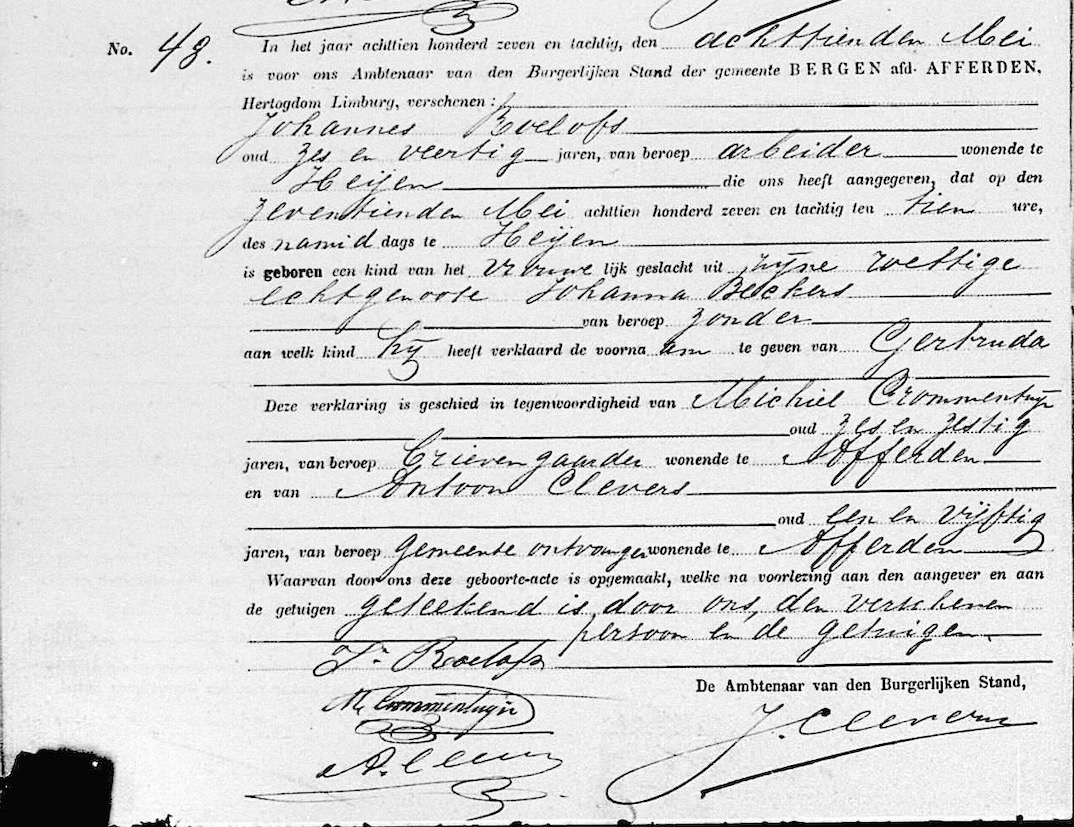 No. 48. In het jaar achttien honderd zeven en tachtig, den achttienden Mei
is voor ons Ambtenaar van den Burgerlijken Stand der gemeente BERGEN afd. AFFERDEN,
Hertogdom Limburg, verschenen:
Johannes Roelofs
oud zes en veertig jaren, van beroep arbeider wonende te
Heijen die ons heeft aangegeven, dat op den
zeventienden Mei achttien honderd zeven en tachtig ten tien ure,
des namid dags te Heijen
is geboren een kind van het vrouwe lijk geslacht uit zijne wettige
echtgenoote Johanna Beckers
van beroep zonder
aan welk kind hij heeft verklaard de voorna am te geven van Gertruda
Deze verklaring is geschied in tegenwoordigheid van Michiel Crommentuijn
oud zes en zestig
jaren, van beroep Brievengaarder wonende te Afferden
en van Antoon Clevers
oud een en vijftig
jaren, van beroep gemeente ontvanger wonende te Afferden
Waarvan door ons deze geboorte-acte is opgemaakt, welke na voorlezing aan den aangever en aan
de getuigen geteekend is door ons, den verschenen
persoon en de getuigen.
Roelofs
De Ambtenaar van den Burgerlijken Stand,
M. Crommentuijn
J. Clevers